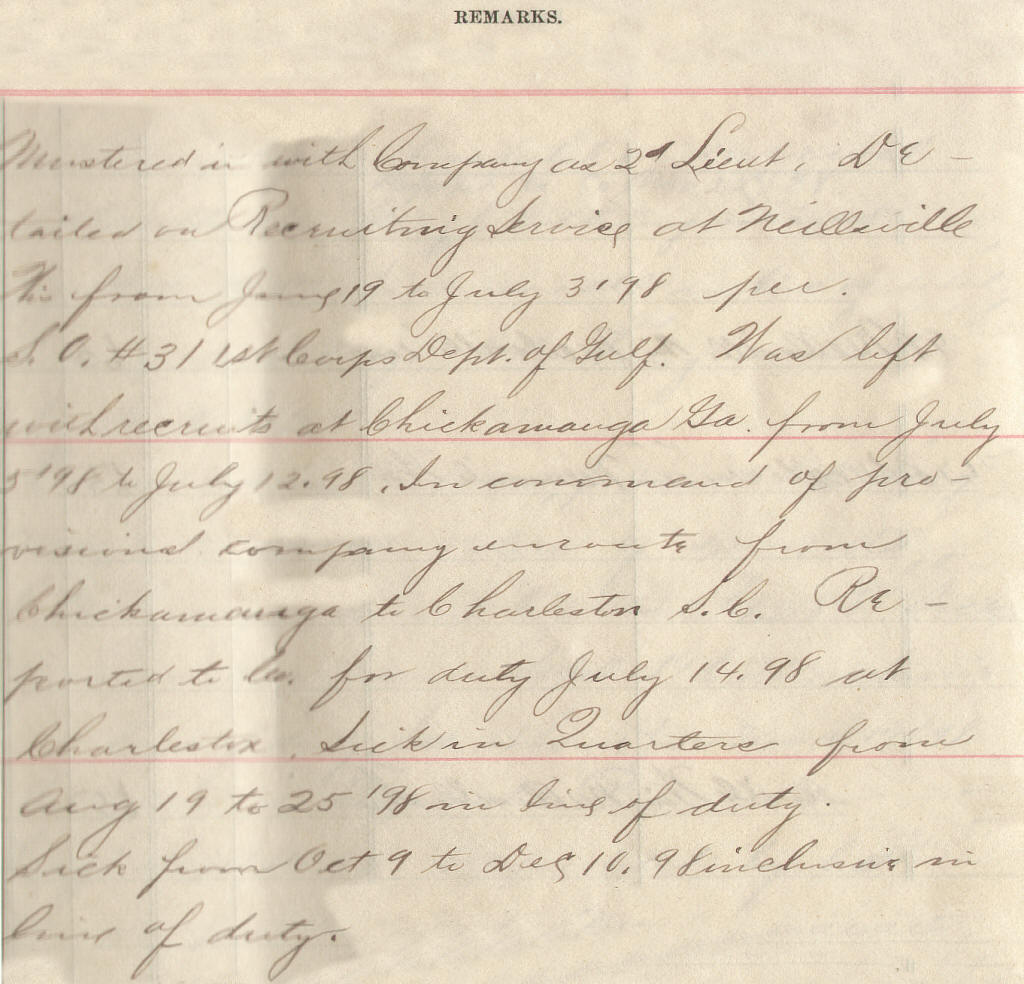 REMARKS.
Mustered in with Company as 2d Lieut, De-
tailed on Recruiting Service at Neillsville
Wis from June 19 to July 3 '98 per.
S.O. #31 1st Corps Dept. of Gulf. Was left
with recruits at Chickamauga Ga. from July
5 '98 to July 12.98. In command of pro-
visional company enroute from
Chickamauga to Charleston S.C. Re-
ported to Co. for duty July 14.98 at
Charleston. Sick in Quarters from
Aug 19 to 25 '98 in line of duty.
Sick from Oct 9 to Dec 10.98 inclusive in
line of duty.